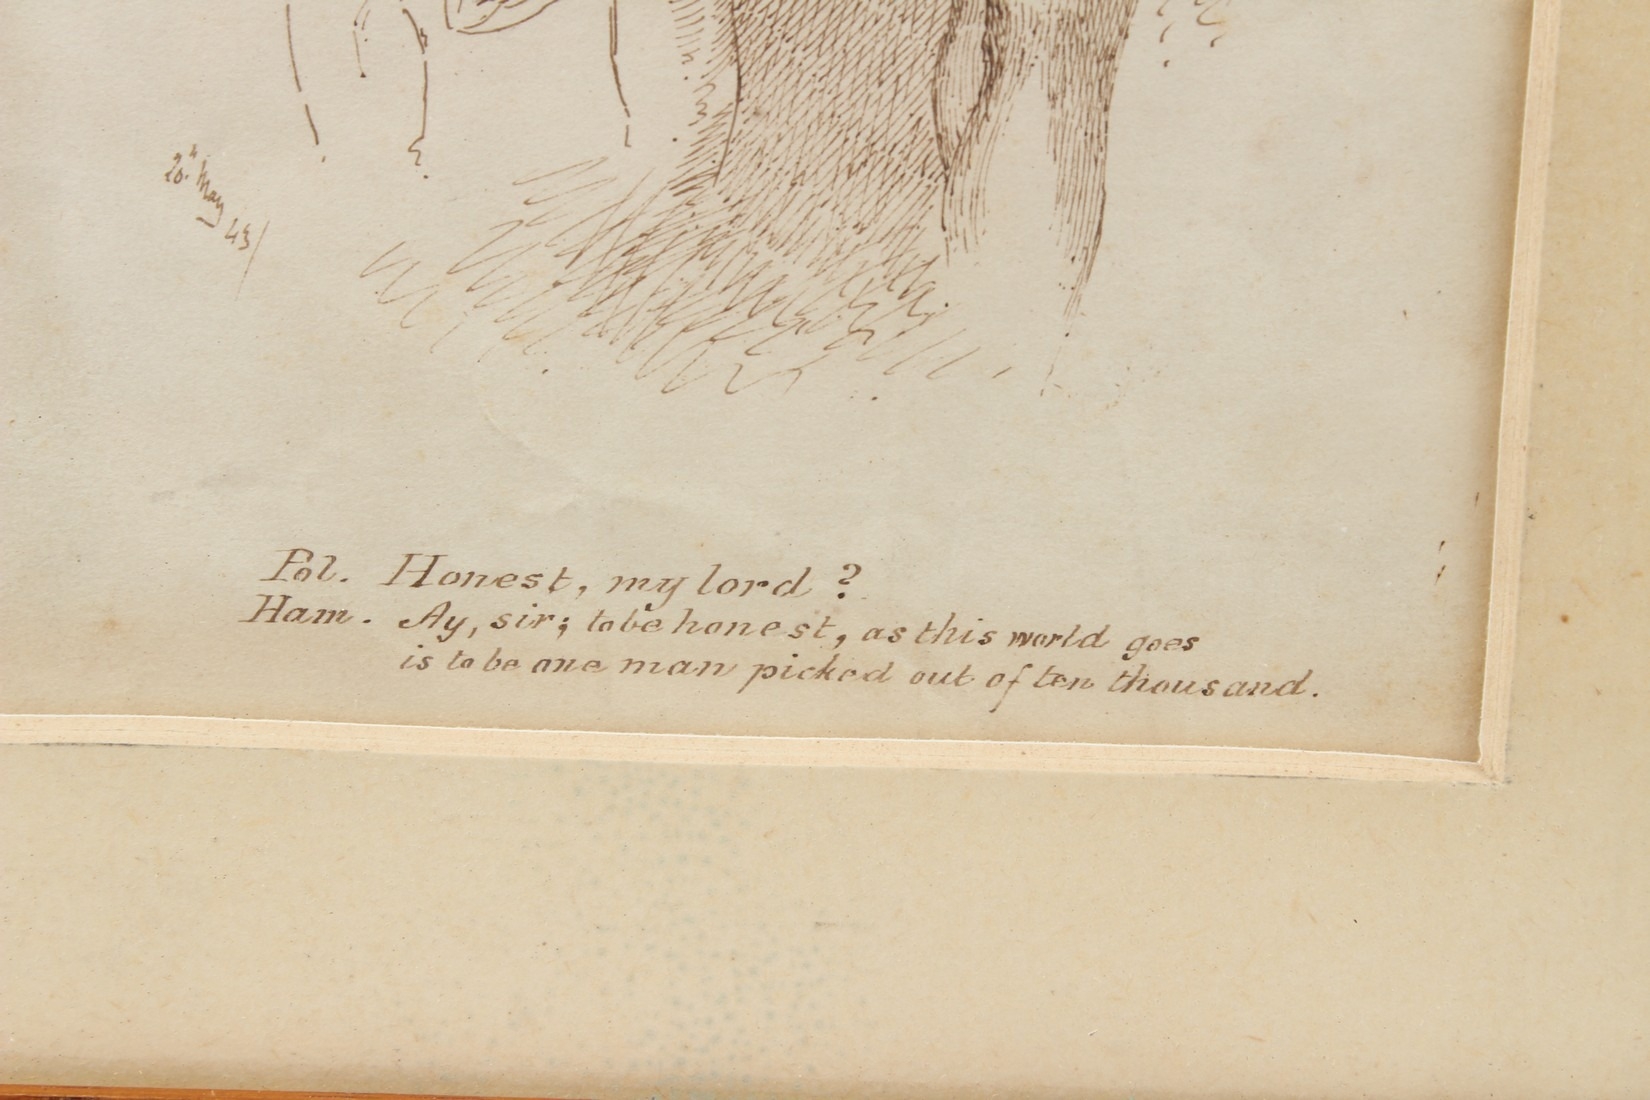 20th May 43/
Pol. Honest, my lord?
Ham. Ay, sir; to be honest, as this world goes
is to be one man picked out of ten thousand.